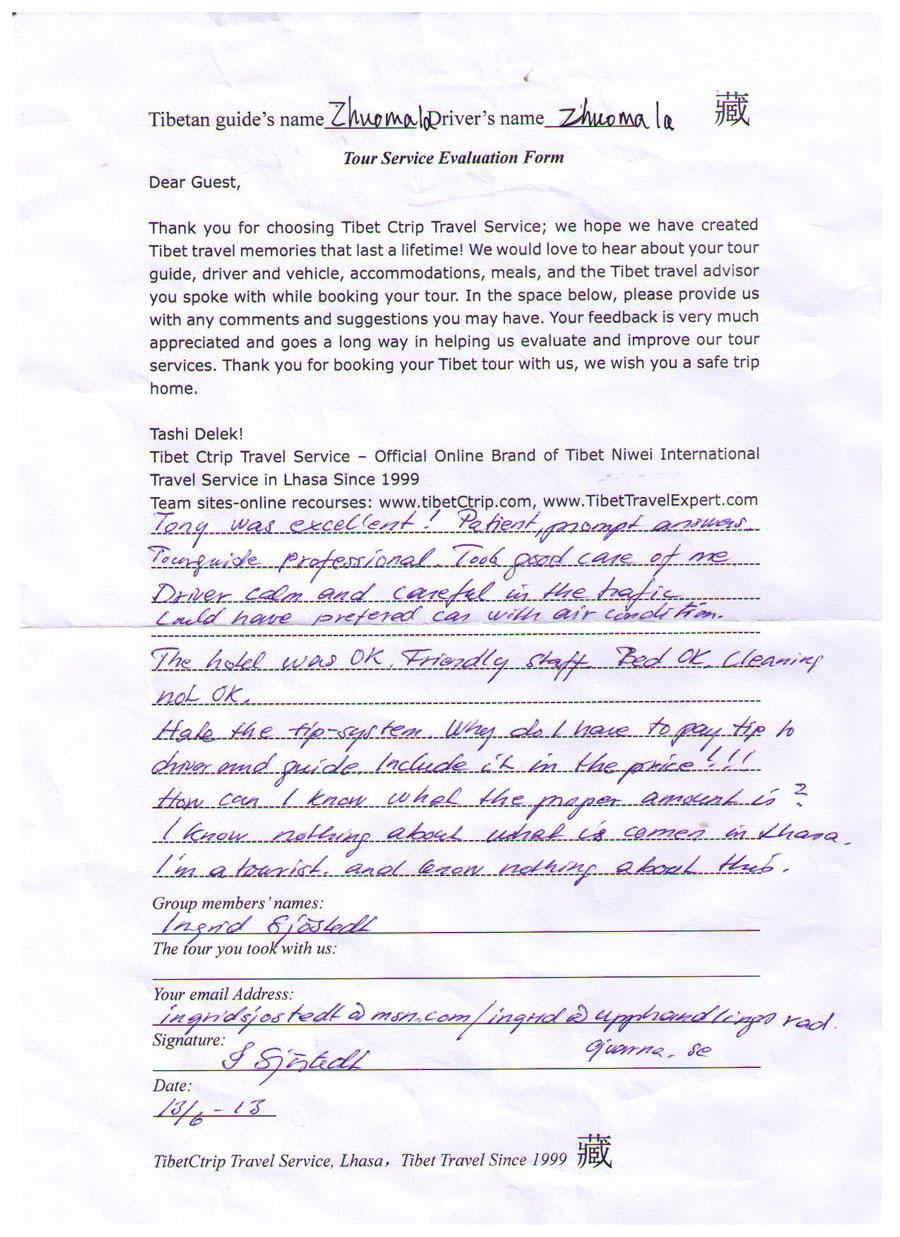 Tibetan guide's name Zhuomala Driver's name Zhuomala 藏
Tour Service Evaluation Form
Dear Guest,
Thank you for choosing Tibet Ctrip Travel Service; we hope we have created
Tibet travel memories that last a lifetime! We would love to hear about your tour
guide, driver and vehicle, accommodations, meals, and the Tibet travel advisor
you spoke with while booking your tour. In the space below, please provide us
with any comments and suggestions you may have. Your feedback is very much
appreciated and goes a long way in helping us evaluate and improve our tour
services. Thank you for booking your Tibet tour with us, we wish you a safe trip
home.
Tashi Delek!
Tibet Ctrip Travel Service – Official Online Brand of Tibet Niwei International
Travel Service in Lhasa Since 1999
Team sites-online recourses: www.tibetCtrip.com, www.TibetTravelExpert.com
Tony was excellent! Patient, prompt answers.
Tourguide professional. Took good care of me
Driver calm and careful in the trafic
Could have prefered car with air condition.
The hotel was OK. Friendly staff. Bed OK. Cleaning
not OK.
Hate the tip-system. Why do I have to pay tip to
driver and guide. Include it in the price!!!
How can I know what the proper amount is?
I know nothing about what is comen in Lhasa.
I'm a tourist, and know nothing about this.
Group members' names:
Ingrid Sjöstedt
The tour you took with us:
Your email Address:
ingridsjostedt@msn.com/ingrid@upphandlingsrad.
Signature:
givarna.se
I Sjöstedt
Date:
13/6-13
TibetCtrip Travel Service, Lhasa, Tibet Travel Since 1999 藏